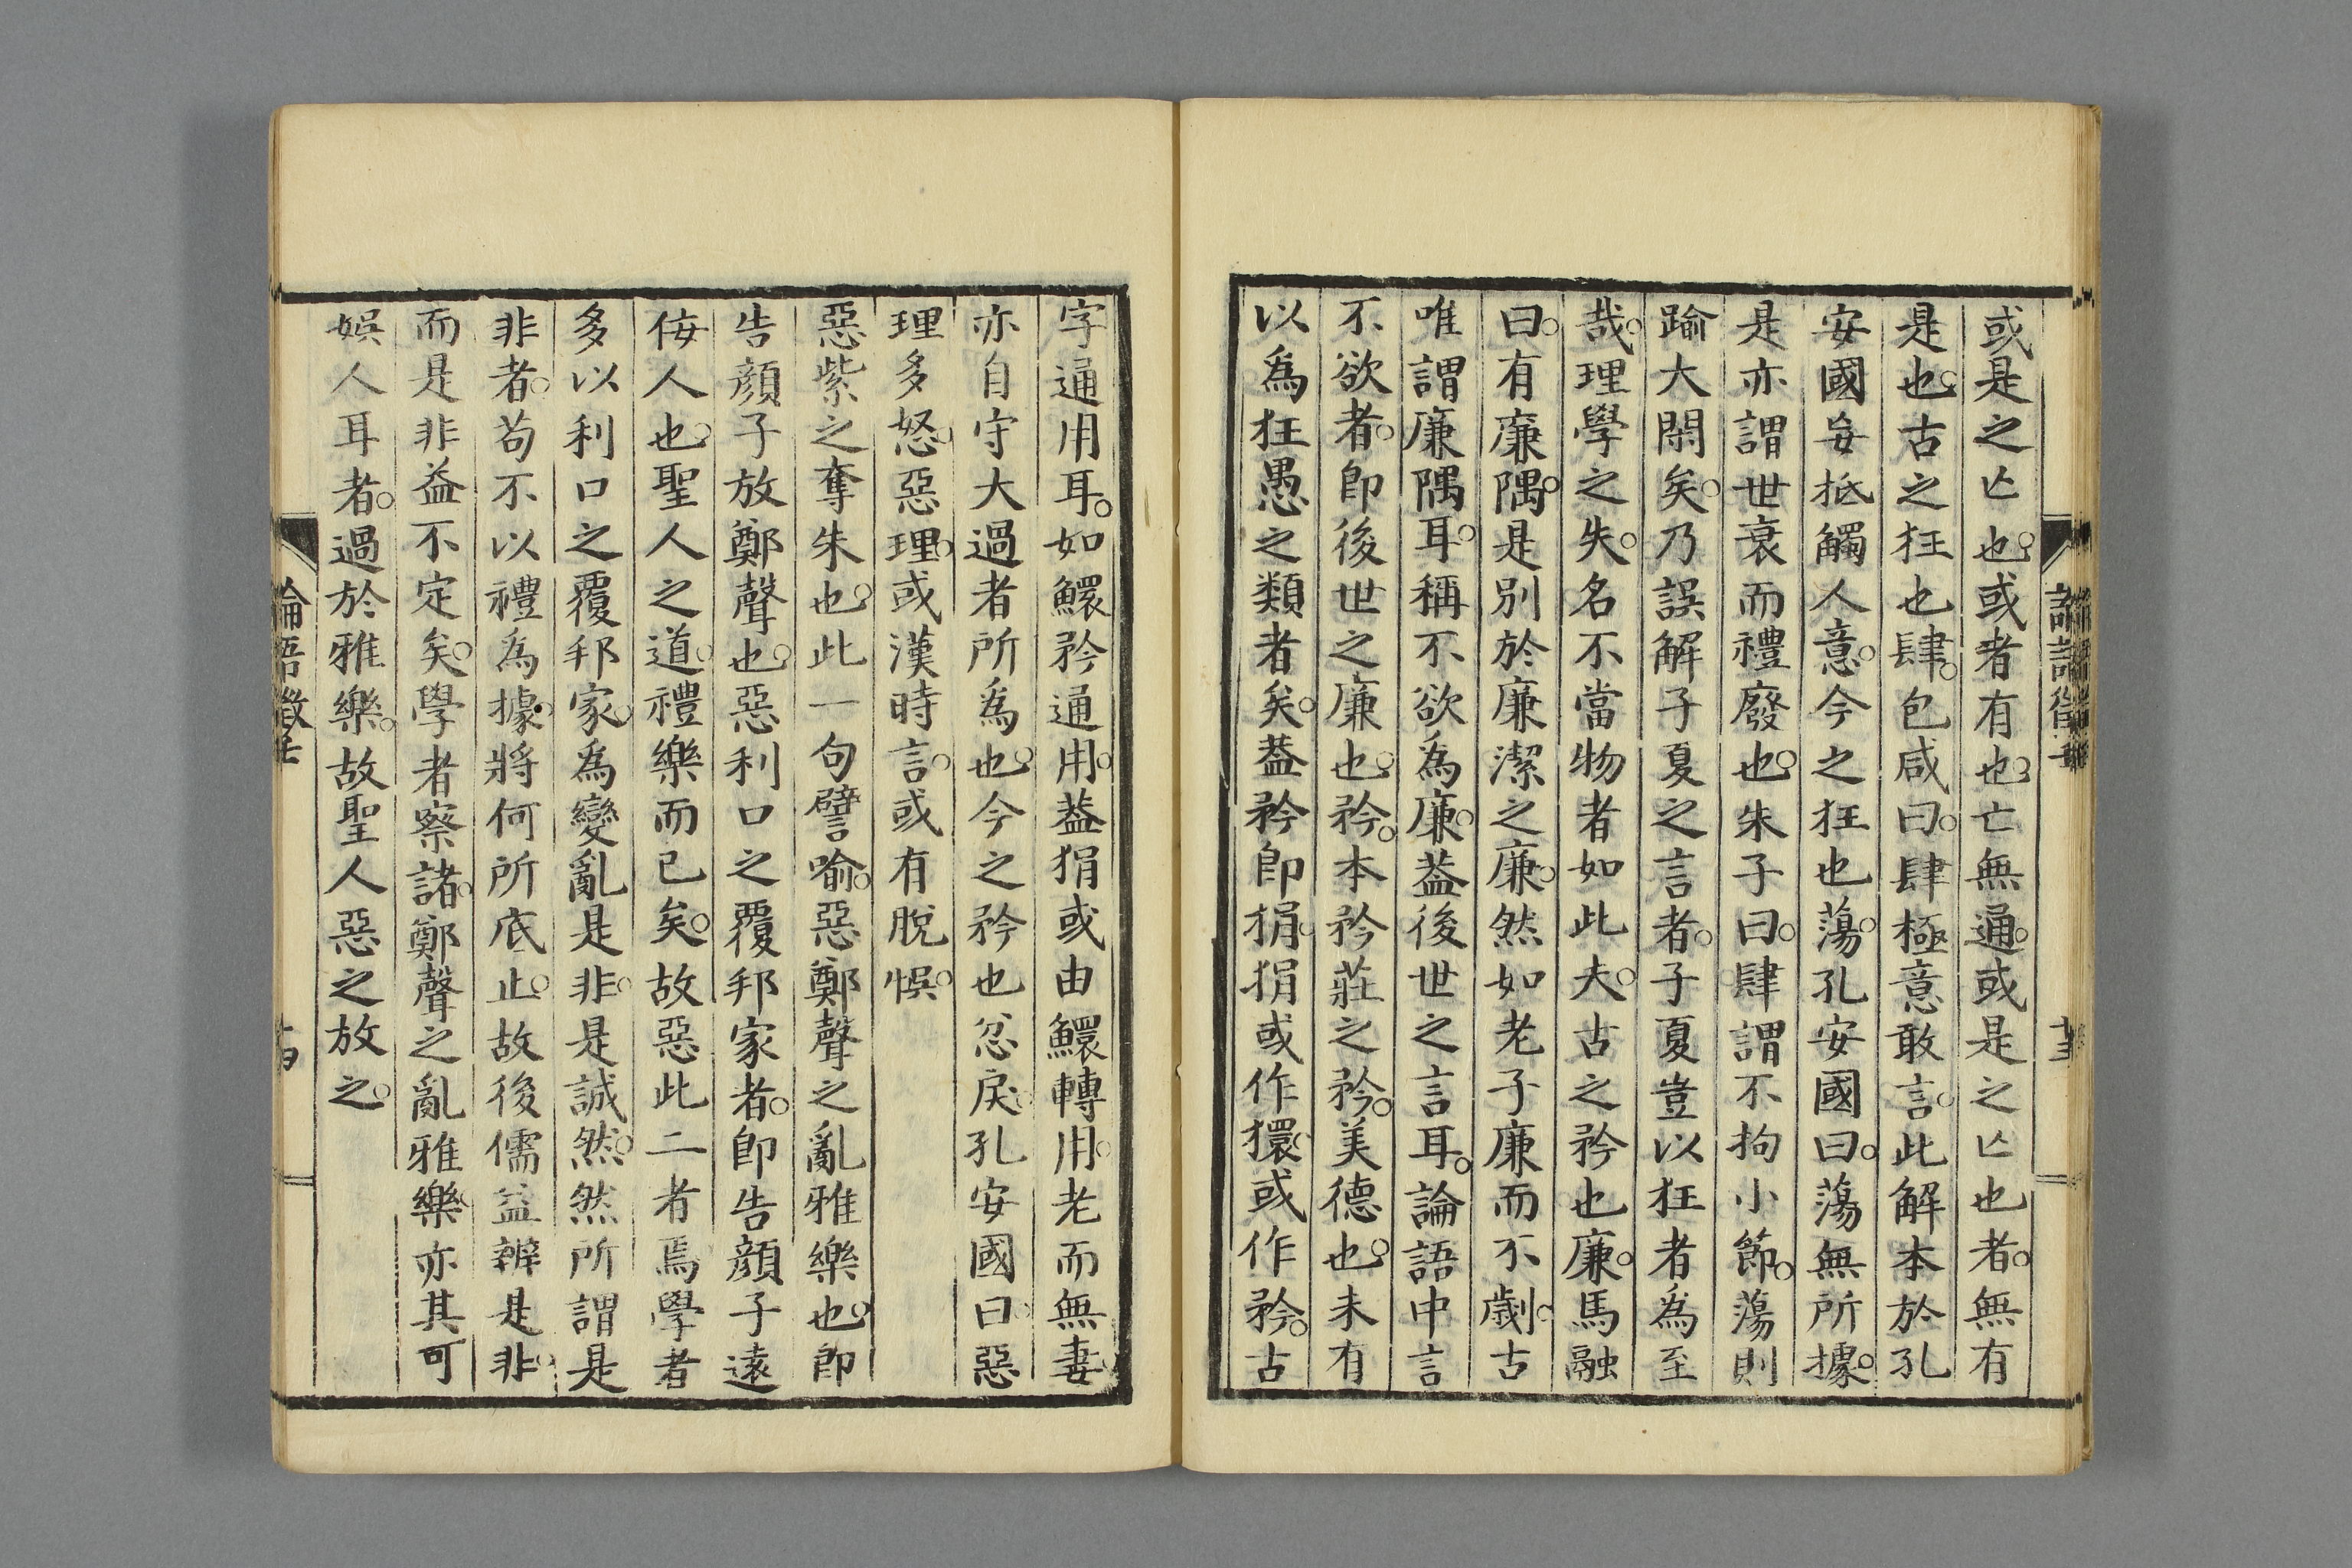 或是之亾也。或者有也。亡無通。或是之亾也者。無有
是也。古之狂也肆。包咸曰。肆極意敢言。此解本於孔
安國毋抵觸人意。今之狂也蕩。孔安國曰。蕩無所據。
是亦謂世衰而禮廢也。朱子曰。肆謂不拘小節。蕩則
踰大閑矣。乃誤解子夏之言者。子夏豈以狂者爲至
哉。理學之失。名不當物者如此夫。古之矜也廉。馬融
曰。有廉隅。是別於廉潔之廉。然如老子廉而不劌。古
唯謂廉隅耳。稱不欲爲廉。葢後世之言耳。論語中言
不欲者。卽後世之廉也。矜。本矜莊之矜。美德也。未有
以爲狂愚之類者矣。葢矜卽狷。狷或作獧。或作矜。古
字通用耳。如鰥矜通用。葢狷或由鰥轉用。老而無妻。
亦自守大過者所爲也。今之矜也忿戾。孔安國曰。惡
理多怒。惡理。或漢時言。或有脫悞。
惡紫之奪朱也。此一句譬喻。惡鄭聲之亂雅樂也。卽
告顏子放鄭聲也。惡利口之覆邦家者。卽告顏子遠
侫人也。聖人之道。禮樂而已矣。故惡此二者焉。學者
多以利口之覆邦家。爲變亂是非。是誠然。然所謂是
非者。苟不以禮爲據。將何所底止。故後儒益辨是非。
而是非益不定矣。學者察諸。鄭聲之亂雅樂。亦其可
娛人耳者。過於雅樂。故聖人惡之放之。
論語徵壬